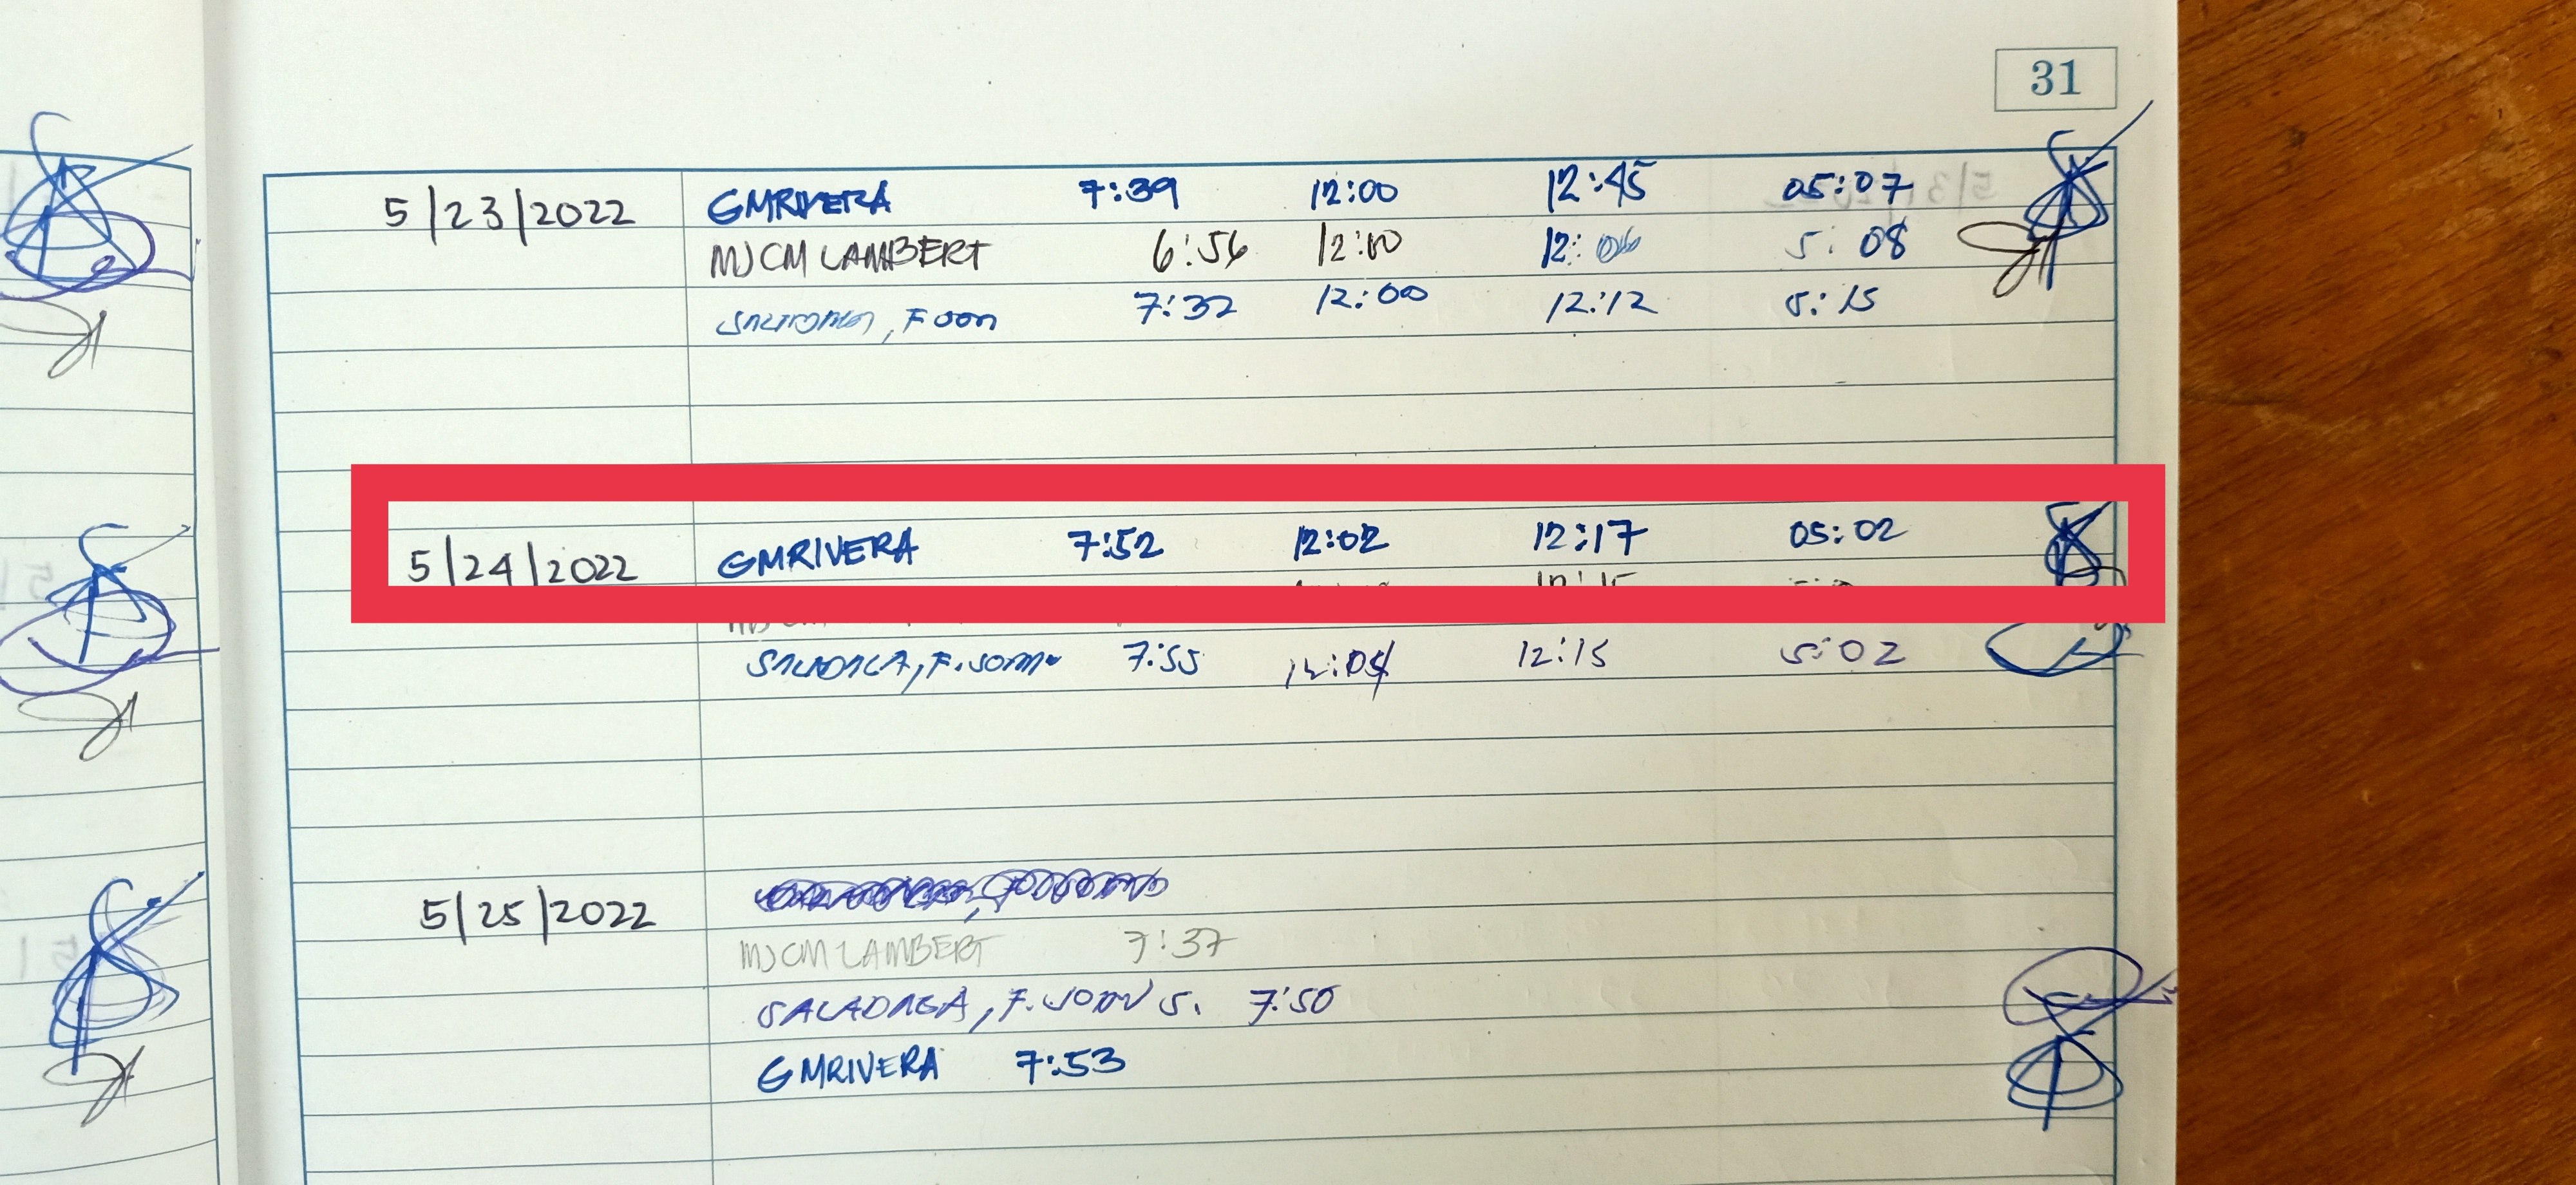 31
5/23/2022 GMRIVERA 7:39 12:00 12:45 05:07
MJCM LAMBERT 6:56 12:00 12: 5:08
7:32 12:00 12:12 5:15
5/24/2022 GMRIVERA 7:52 12:02 12:17 05:02
SALADAGA, F. JOHN 7:55 12:05 12:15 5:02
5/25/2022
MJCM LAMBERT 7:37
SALADAGA, F. JOHN S. 7:50
GMRIVERA 7:53